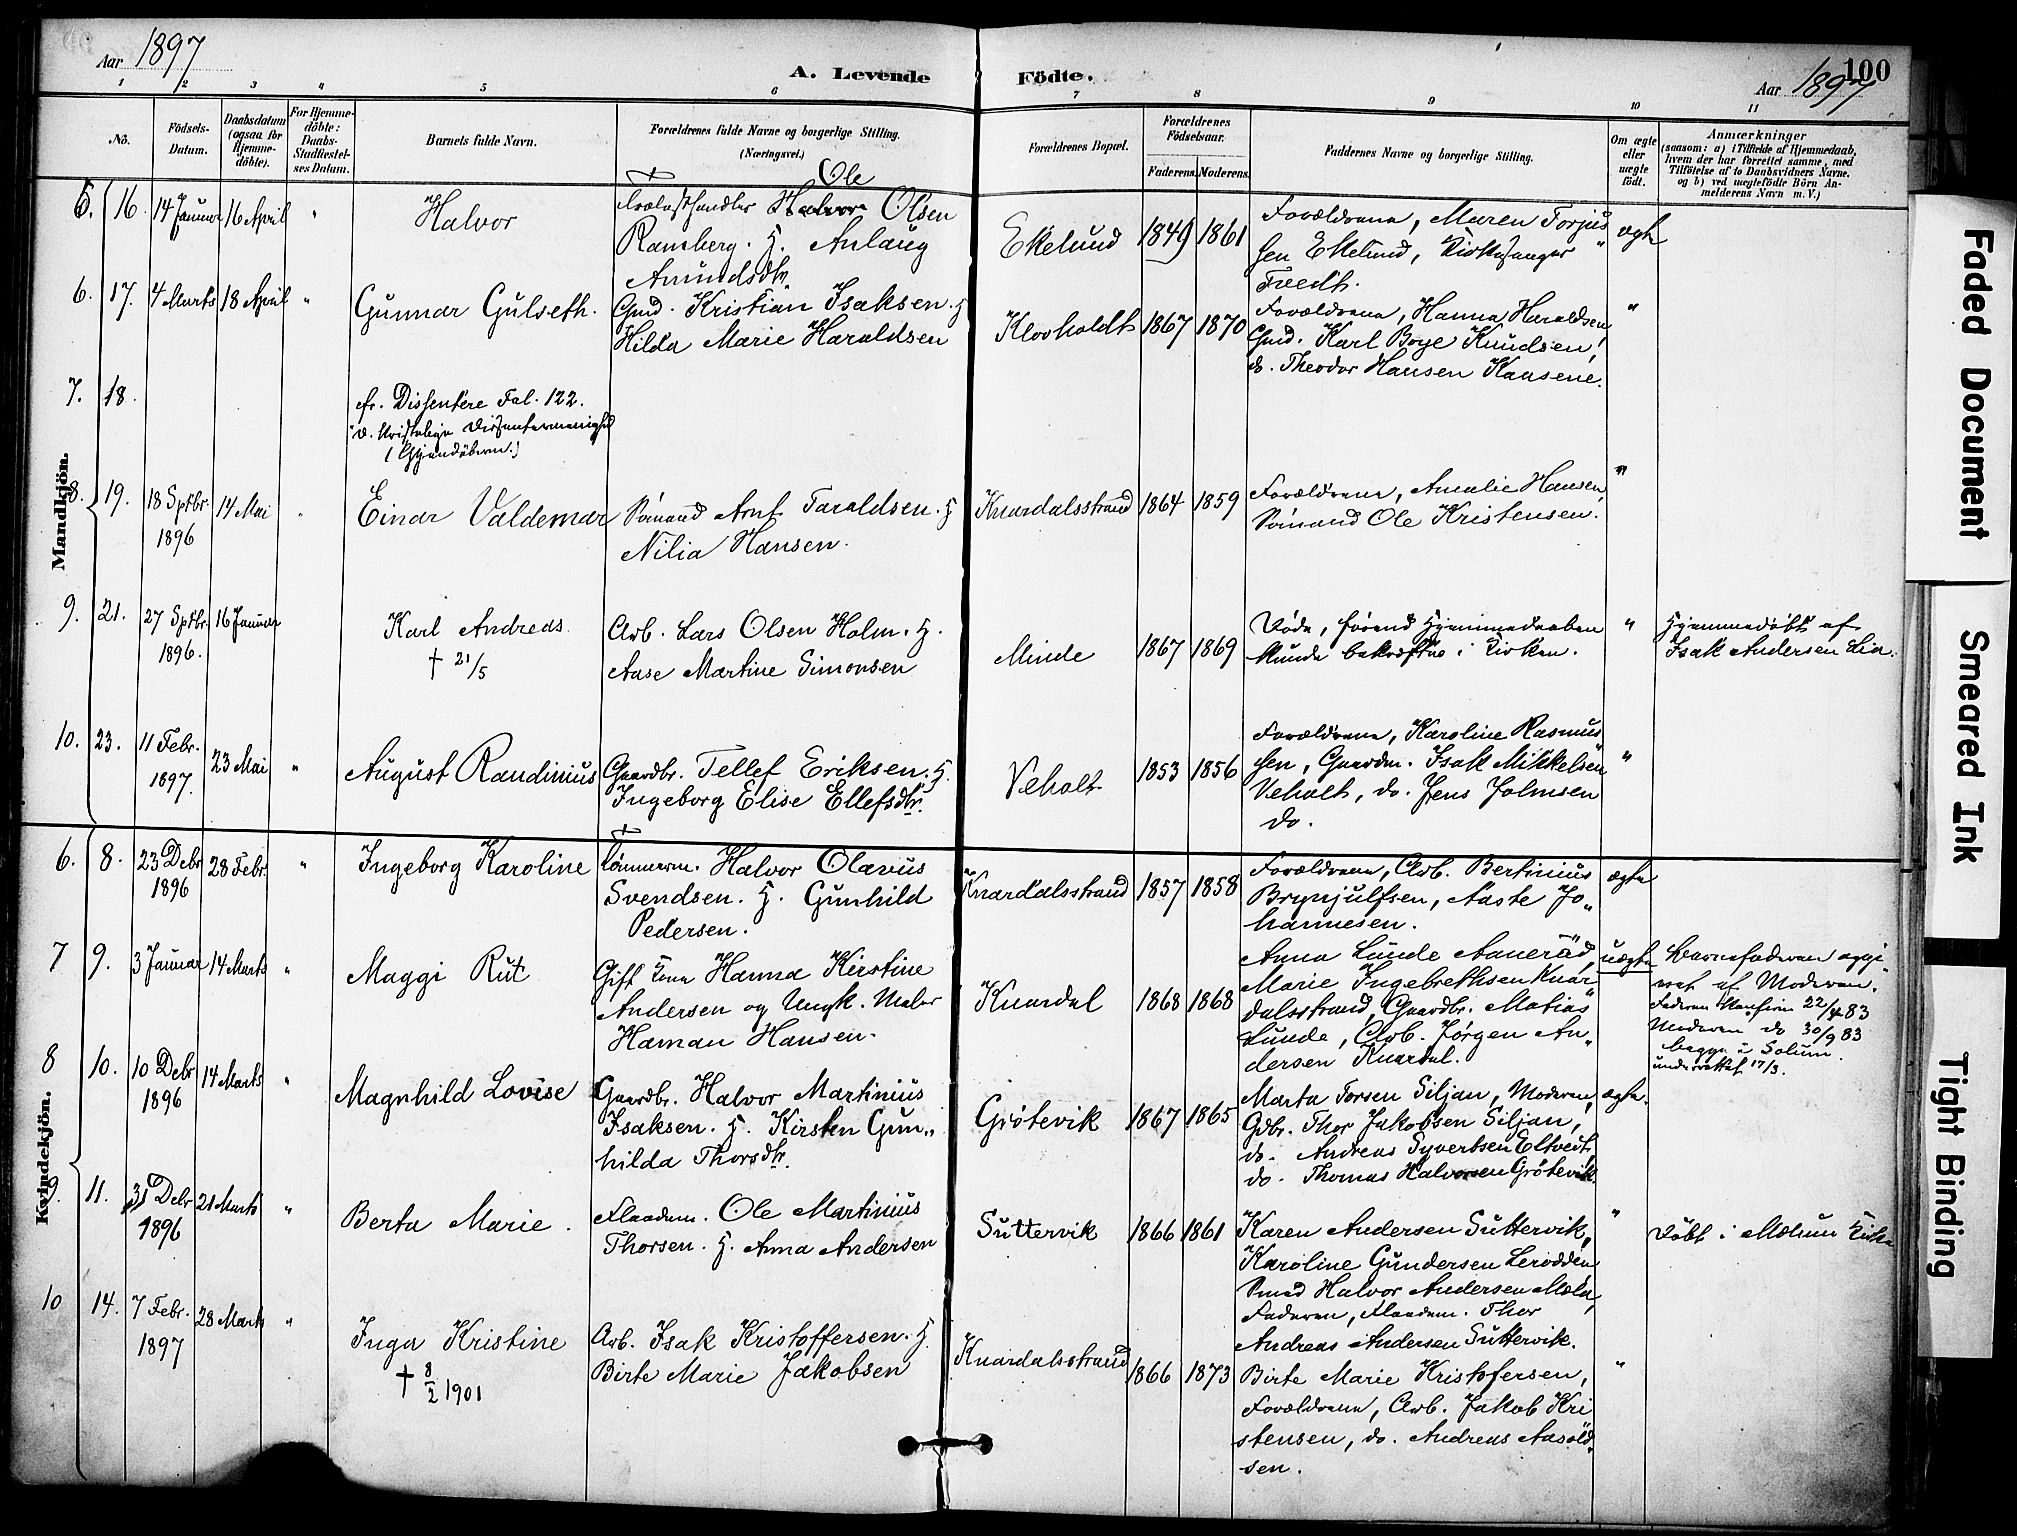 Aar 1897
A. Levende Födte.
Aar 1897
100
1 2 3 4 5 6 7 8 9 10 11
No.
Födsels-Datum.
Daabsdatum (ogsaa for Hjemme-döbte).
For Hjemme-döbte: Daabs-Stadfæstel-ses Datum.
Barnets fulde Navn.
Forældrenes fulde Navne og borgerlige Stilling.
(Næringsvei.)
Forældrenes Bopæl.
Forældrenes Födselsaar.
Faderens. Moderens.
Faddernes Navne og borgerlige Stilling.
Om ægte eller uægte födt.
Anmærkninger
(saasom: a) i Tilfælde af Hjemmedaab, hvem der har forrettet samme, med Tilföielse af to Daabsvidners Navne, og b) ved uægtefödte Börn Anmelderens Navn m. V.)
Mandkjön.
5. 16. 14 Januar 16 April " Halvor
Trælasthandler Halvor Ole Olsen
Ramberg. H. Anlaug
Amundsdtr.
Ekelund 1849 1861
Forældrene, Maren Torjus"
sen Ekelund, Kirkesanger
Tvedt.
ægte
6. 17. 4 Marts 18 April " Gunnar Gulseth.
Gmd. Kristian Isaksen. H
Hilda Marie Haraldsen
Klovholdt 1867 1870
Forældrene, Hanna Haraldsen,
Gmd. Karl Boye Knudsen,
do. Theodor Hansen Kaasene.
"
7. 18.
cfr. Dissentere Fol. 122.
(d. kristelige Dissentermenighed
(Gjendöbere.)
8. 19. 18 Sptbr. 1896 14 Mai " Einar Valdemar
Sömand Arnt Taraldsen. H
Nilia Hansen.
Knardalsstrand 1864 1859
Forældrene, Amalie Hansen,
Sömand Ole Kristensen.
"
9. 21. 27 Sptbr. 1896. 16 Januar
Karl Andreas
† 21/5
Arb. Lars Olsen Holm. H.
Aase Martine Simonsen
Minde 1867 1869
Döde, förend Hjemmedaaben
kunde bekræftes i Kirken.
"
Hjemmedöbt af
Isak Andersen Lia.
10. 23. 11 Febr. 1897. 23 Mai " August Randinius
Gaardbr. Tellef Eriksen. H.
Ingeborg Elise Ellefsdtr.
Veholt 1853 1856
Forældrene, Karoline Rasmus"
sen, Gaardm. Isak Mikkelsen
Veholt, do. Jens Johnsen
do.
"
Kvindekjön.
6. 8. 23 Debr 1896 28 Febr. " Ingeborg Karoline
Tömmerm. Halvor Olavus
Svendsen. H. Gunhild
Pedersen.
Knardalsstrand 1857 1858
Forældrene, Arb. Bertinius
Brynjulfsen, Aaste Jo"
hannesen.
ægte
7 9. 3 Januar 14 Marts " Maggi Rut
Gift Kone Hanna Kirstine
Andersen og Ungk. Maler
Haman Hansen.
Knardal 1868 1868
Anna Lunde Aaneröd,
Marie Ingebrethsen Knar"
dalsstrand, Gaardbr. Matias
Lunde, Arb. Jörgen An"
dersen Knardal.
uægte
Barnefaderen opgi"
vet af Moderen.
Faderen Konfirm 22/4 83
Moderen do 30/9 83
begge i Solum.
underrettet 17/3.
8 10. 10 Debr 1896 14 Marts " Magnhild Lovise
Gaardbr. Halvor Martinius
Isaksen. H. Kirsten Gun"
hilda Thorsdtr.
Grötevik 1867 1865
Marta Torsen Siljan, Moderen,
Gdbr. Thor Jakobsen Siljan,
do. Andreas Syvertsen Eltvedt,
do. Thomas Halvorsen Grötevik.
ægte.
9. 11. 31 Debr 1896 21 Marts " Berta Marie.
Flaadem. Ole Martinius
Thorsen. H. Anna Andersen
Suttervik 1866 1861
Karen Andersen Suttervik,
Karoline Gundersen Lerodden
Smed Halvor Andersen Mæla,
Faderen, Flaadem. Thor
Andreas Andersen Suttervik.
"
Döbt i Mælum Kirke
10 14. 7 Febr. 1897 28 Marts " Inga Kristine
† 8/2 1901
Arb. Isak Kristoffersen. H.
Birte Marie Jakobsen
Knardalsstrand 1866 1873
Birte Marie Kristofersen,
Forældrene, Arb. Jakob Kri
stensen, do. Andreas Aasold"
sen.
"
Faded Document
Smeared Ink
Tight Binding